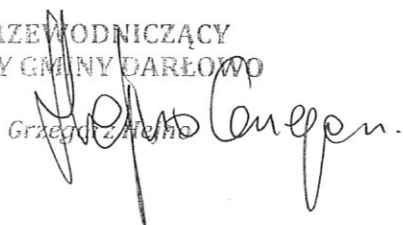 RZEWODNICZĄCY
Y GMINY DARŁOWO
Grzegorz Hejno